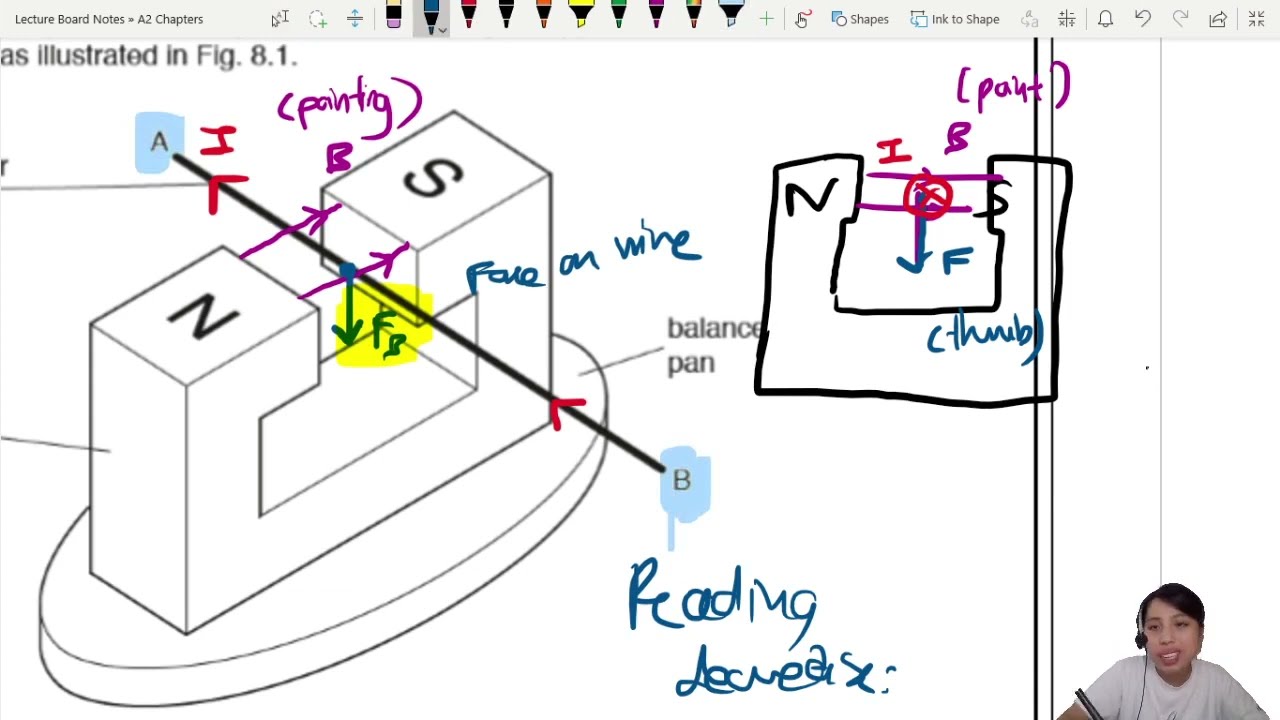 Lecture Board Notes » A2 Chapters
Shapes
Ink to Shape
as illustrated in Fig. 8.1.
(pointing)
(point)
A
I
B
S
I
B
N
S
Force on wire
F
N
F_B
(thumb)
balance
pan
B
Reading
decrease: